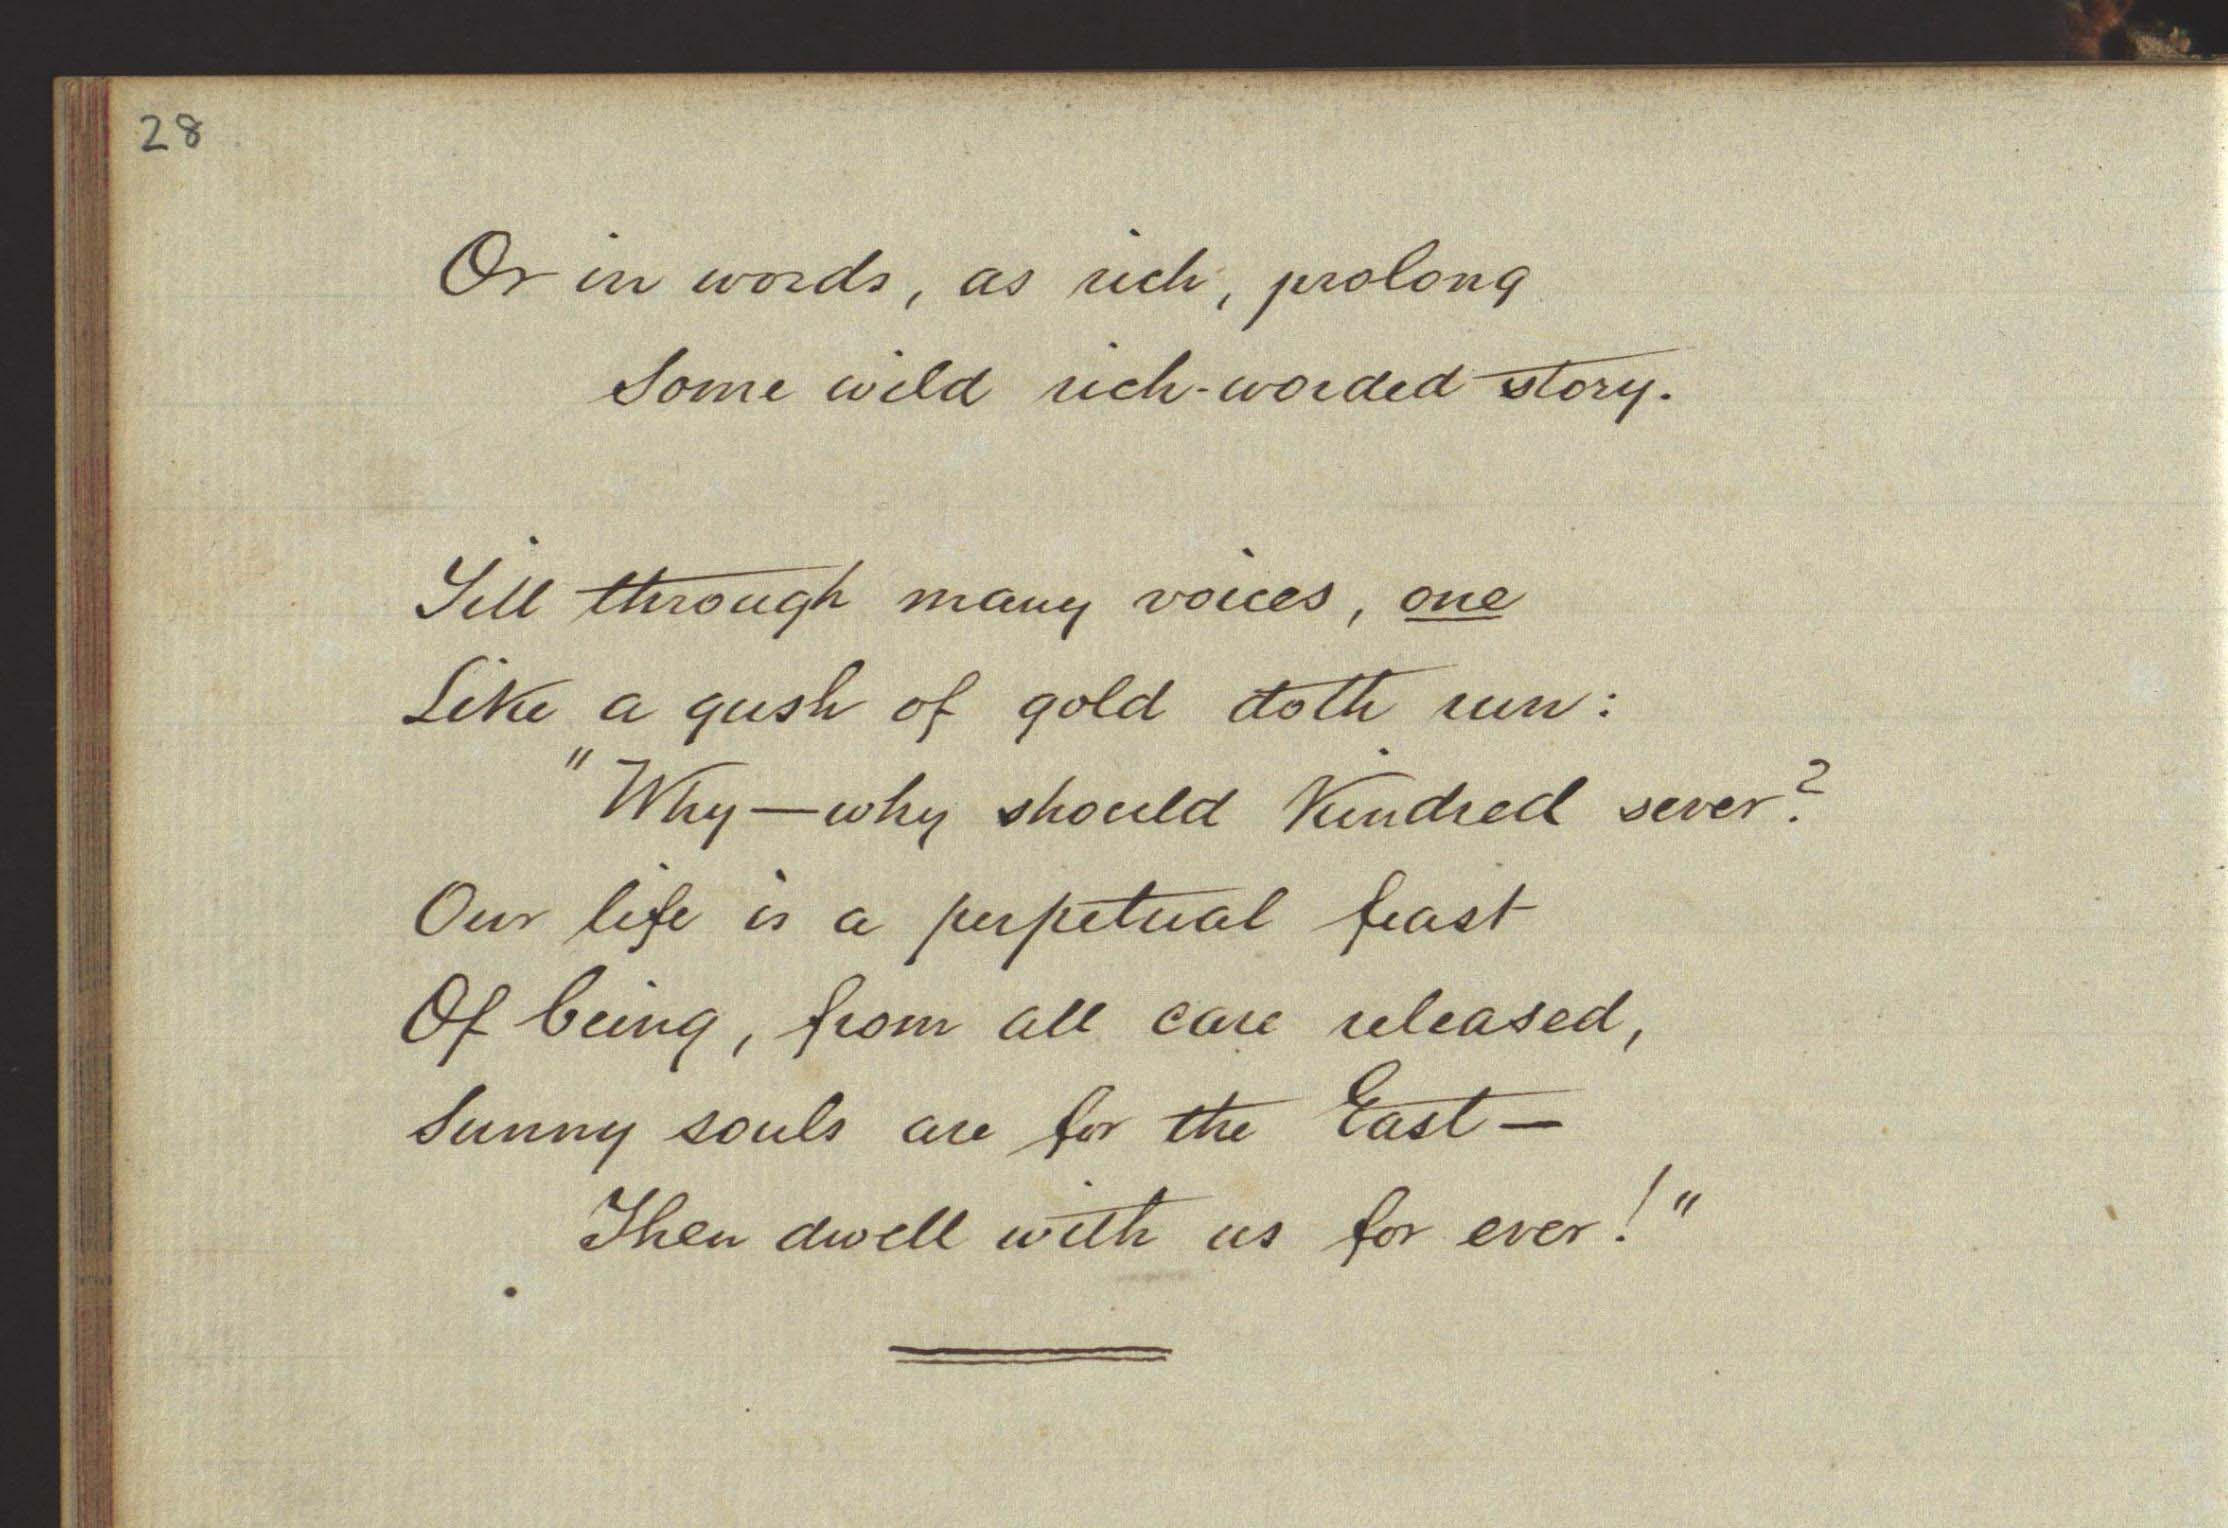 28
Or in words, as rich, prolong
Some wild rich-worded story.
Till through many voices, one
Like a gush of gold doth run:
"Why—why should Kindred sever?
Our life is a perpetual feast
Of being, from all care released,
Sunny souls are for the East—
Then dwell with us for ever!"